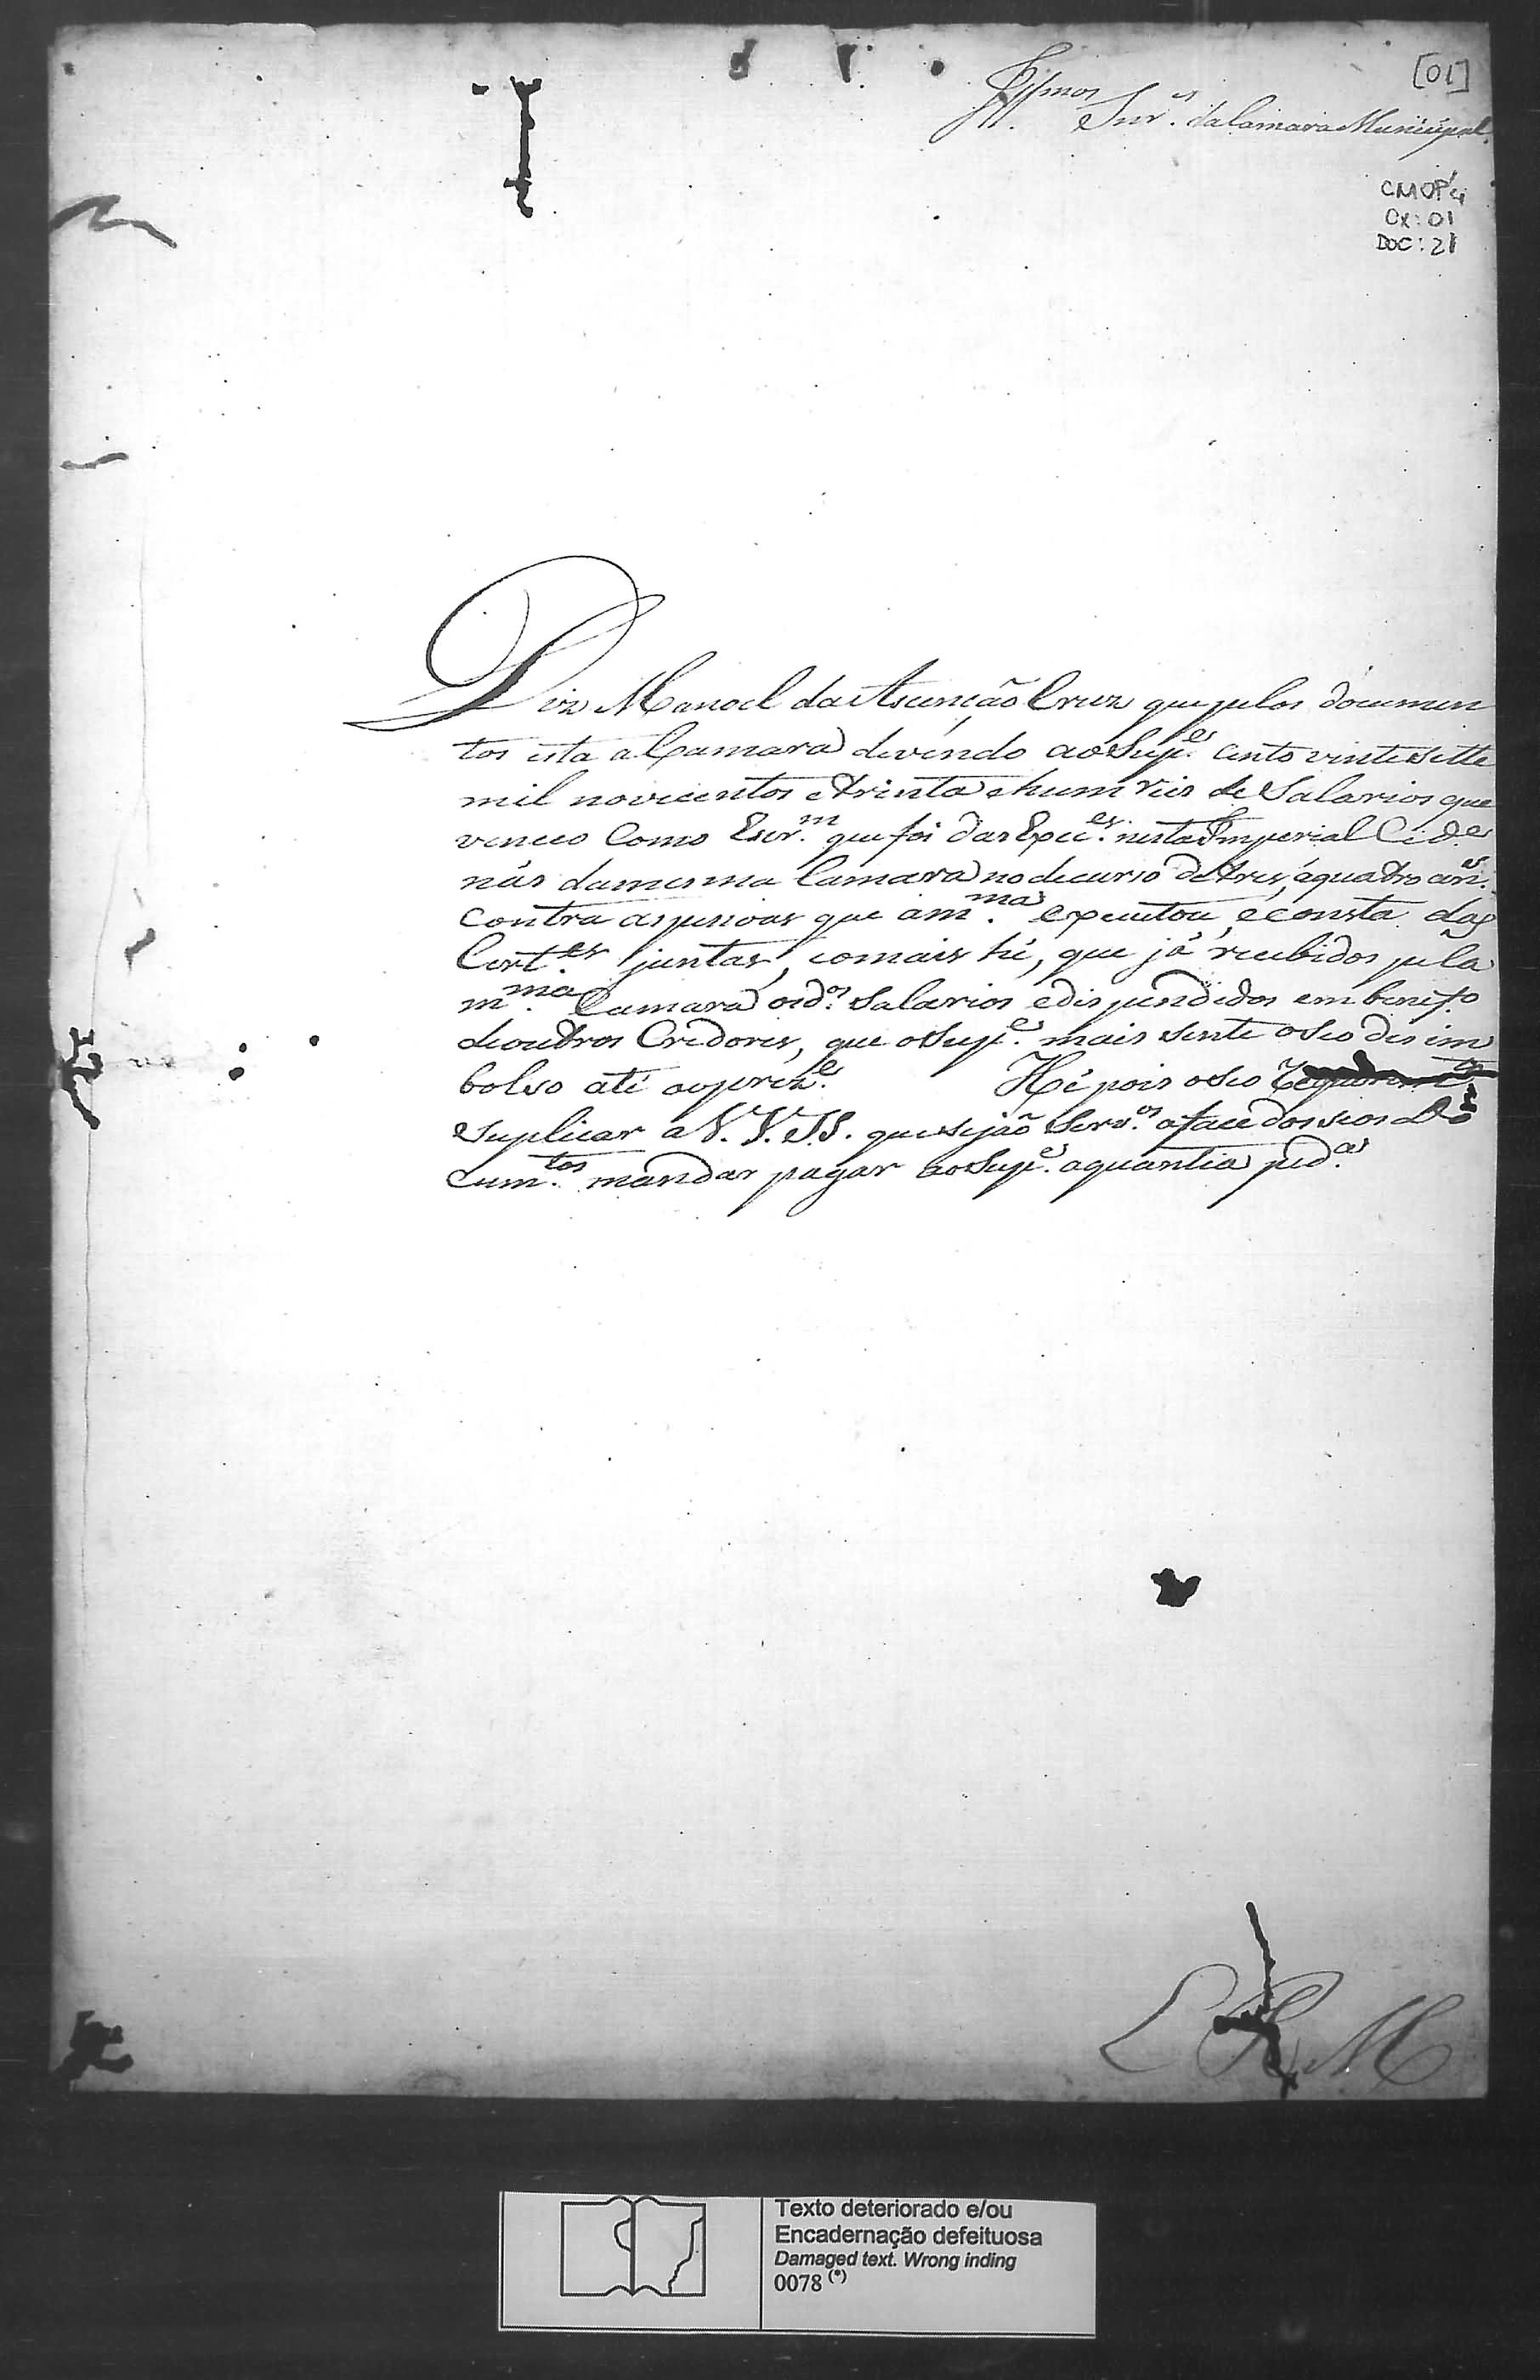 [01]
Illmos Snr.es da Camara Municipal.
CMOP
Cx: 01
DOC: 21
Diz Manoel da Ascenção Cruz que pelos documen
tos esta a Camara devendo ao Sup.e cento vinte e sette
mil novecentos e trinta e hum reis de Salarios que
venceo Como Escr.m que foi das Exec.es nesta Imperial Cid.e
nas da mesma Camara no decurso de tres, á quatro an.s
contra as pessoas que a m.ma executou, e consta das
Cert.es juntas, e o mais hé, que já recebidos pela
m.ma Camara os d.os Salarios e dispendidos em benef.o
de outros Credores, que o Sup.e mais sente o seo desim
bolso até ao prez.e Hé pois o seo
Suplicar a V. V. S. S. que sejaõ Serv.os a face dos seos Do
cum.tos mandar pagar ao Sup.e a quantia ped.a
E R M
Texto deteriorado e/ou
Encadernação defeituosa
Damaged text. Wrong inding
0078 (*)